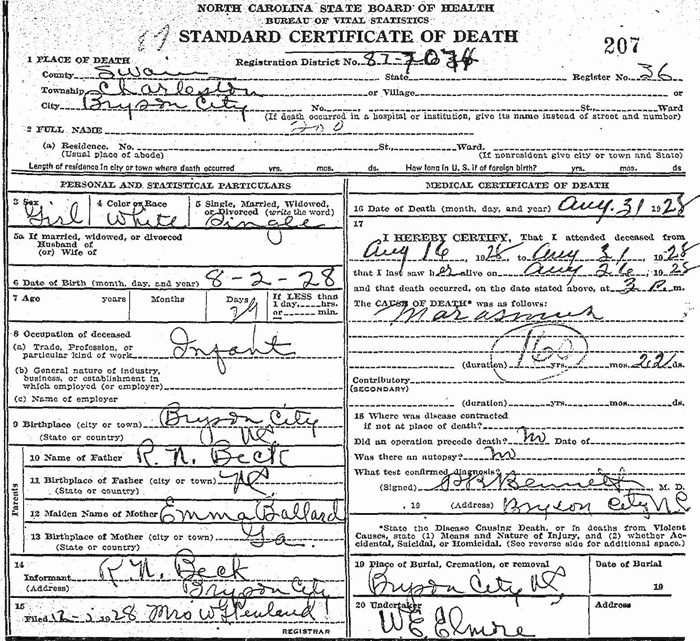 NORTH CAROLINA STATE BOARD OF HEALTH
BUREAU OF VITAL STATISTICS
STANDARD CERTIFICATE OF DEATH
207
1 PLACE OF DEATH Registration District No. 87-
County Swain State Register No. 36
Township Charleston or Village or
City Bryson City No. St., Ward
(If death occurred in a hospital or institution, give its name instead of street and number)
2 FULL NAME
(a) Residence. No. St., Ward.
(Usual place of abode) (If nonresident give city or town and State)
Length of residence in city or town where death occurred yrs. mos. ds. How long in U. S. if of foreign birth? yrs. mos. ds.
PERSONAL AND STATISTICAL PARTICULARS
3 Sex 4 Color or Race 5 Single, Married, Widowed,
or Divorced (write the word)
Girl White Single
5a If married, widowed, or divorced
Husband of
(or) Wife of
6 Date of Birth (month, day, and year) 8-2-28
7 Age years Months Days If LESS than
1 day, hrs.
or min.
29
8 Occupation of deceased
(a) Trade, Profession, or
particular kind of work Infant
(b) General nature of industry,
business, or establishment in
which employed (or employer)
(c) Name of employer
9 Birthplace (city or town) Bryson City
(State or country) NC
Parents
10 Name of Father R. N. Beck
11 Birthplace of Father (city or town) NC
(State or country)
12 Maiden Name of Mother Emma Ballard
13 Birthplace of Mother (city or town) Ga.
(State or country)
14
Informant R. N. Beck
(Address) Bryson City
15
Filed 1928 Mrs W
REGISTRAR
MEDICAL CERTIFICATE OF DEATH
16 Date of Death (month, day, and year) Aug. 31 1928
17
I HEREBY CERTIFY, That I attended deceased from
Aug 16, 1928, to Aug 31, 1928
that I last saw her alive on Aug 26, 1928
and that death occurred, on the date stated above, at 3 P. m.
The CAUSE OF DEATH* was as follows:
Marasmus
160
(duration) yrs. mos. 22 ds.
Contributory
(SECONDARY)
(duration) yrs. mos. ds.
18 Where was disease contracted
if not at place of death?
Did an operation precede death? no Date of
Was there an autopsy? no
What test confirmed diagnosis?
(Signed) Bennett M. D.
, 19 (Address) Bryson City N.C
*State the Disease Causing Death, or in deaths from Violent
Causes, state (1) Means and Nature of Injury, and (2) whether Ac-
cidental, Suicidal, or Homicidal. (See reverse side for additional space.)
19 Place of Burial, Cremation, or removal Date of Burial
Bryson City NC 19
20 Undertaker Address
W E Elmore